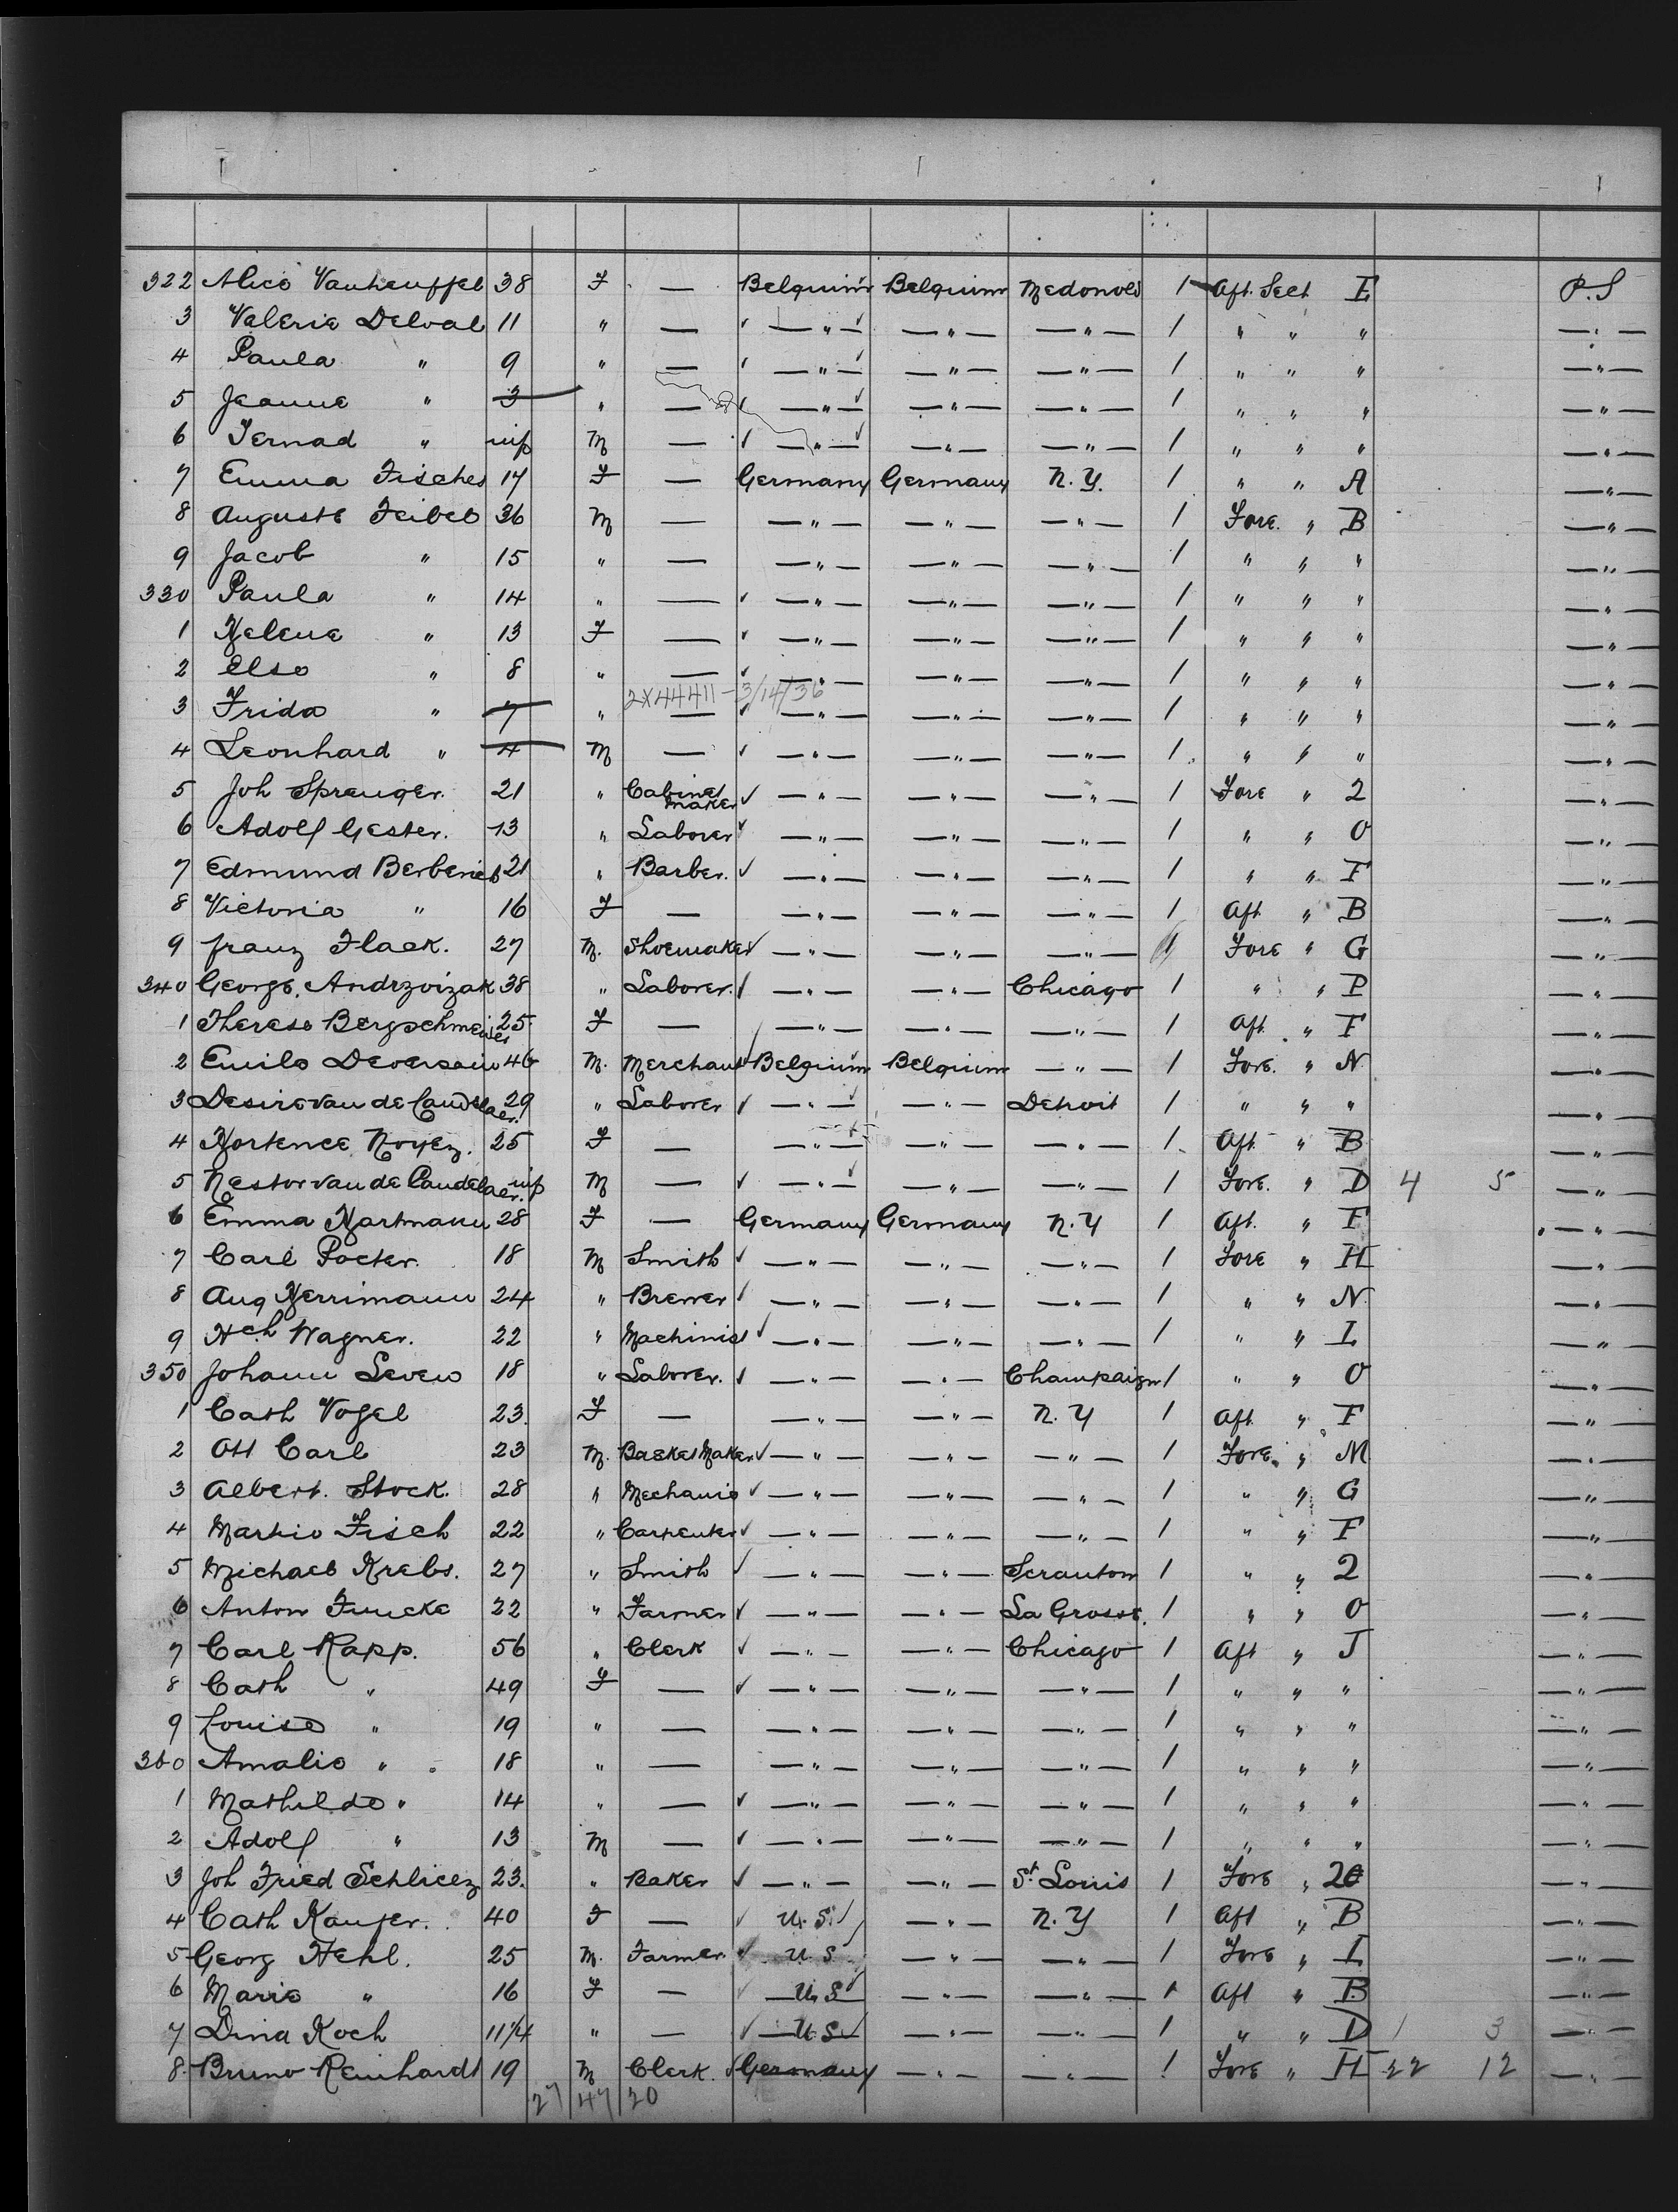 322 Alice Vanheuffel 38 F — Belgium Belgium Medonold 1 Aft. Sect E P.S
3 Valerie Delval 11 " — —"— —"— —"— 1 " " " —"—
4 Paula " 9 " — —"— —"— —"— 1 " " " —"—
5 Jeanne " 3 " — —"— —"— —"— 1 " " " —"—
6 Fernad " inf M — —"— —"— —"— 1 " " " —"—
7 Emma Fischer 17 F — Germany Germany N.Y. 1 " " A —"—
8 Auguste Feibel 36 M — —"— —"— —"— 1 Fore. " B —"—
9 Jacob " 15 " — —"— —"— —"— 1 " " " —"—
330 Paula " 14 " — —"— —"— —"— 1 " " " —"—
1 Helene " 13 F — —"— —"— —"— 1 " " " —"—
2 Else " 8 " — —"— —"— —"— 1 " " " —"—
2X44411 - 3/14/36
3 Frida " 7 " — —"— —"— —"— 1 " " " —"—
4 Leonhard " 4 M — —"— —"— —"— 1 " " " —"—
5 Joh Sprenger. 21 " Cabinet maker —"— —"— —"— 1 Fore " 2 —"—
6 Adolf Gester. 13 " Laborer —"— —"— —"— 1 " " O —"—
7 Edmund Berberich 21 " Barber. —"— —"— —"— 1 " " F —"—
8 Victoria " 16 F — —"— —"— —"— 1 Aft " B —"—
9 Franz Flack. 27 M. Shoemaker —"— —"— —"— 1 Fore " G —"—
340 George. 38 " Laborer. —"— —"— Chicago 1 " " P —"—
1 Therese Bergschmeider 25 F — —"— —"— —"— 1 Aft " F —"—
2 Emile 46 M. Merchant Belgium Belgium —"— 1 Fore. " N —"—
3 Desire van de Candelaer. 29 " Laborer —"— —"— Detroit 1 " " " —"—
4 Hortence Noyez. 25 F — —"— —"— —"— 1 Aft " B —"—
5 Nestor van de Candelaer. inf M — —"— —"— —"— 1 Fore. " D 4 5 —"—
6 Emma Hartmann 28 F — Germany Germany N.Y 1 Aft. " F —"—
7 Carl Pocter. 18 M Smith —"— —"— —"— 1 Fore " H —"—
8 Aug Herrimann 24 " Brewer —"— —"— —"— 1 " " N. —"—
9 Hch Wagner. 22 " Machinist —"— —"— —"— 1 " " L —"—
350 Johann Leven 18 " Laborer. —"— —"— Champaign 1 " " O —"—
1 Cath Vogel 23. F — —"— —"— N.Y 1 Aft " F —"—
2 Ott Carl 23 M. Basket Maker —"— —"— —"— 1 Fore. " M —"—
3 Albert. Stock. 28 " Mechanic —"— —"— —"— 1 " " G —"—
4 Martin Fisch 22 " Carpenter —"— —"— —"— 1 " " F —"—
5 Michael Krebs. 27 " Smith —"— —"— Scranton 1 " " 2 —"—
6 Anton Funcke 22 " Farmer —"— —"— La Grosse. 1 " " O —"—
7 Carl Rapp. 56 " Clerk —"— —"— Chicago 1 Aft " J —"—
8 Cath " 49 F — —"— —"— —"— 1 " " " —"—
9 Louise " 19 " — —"— —"— —"— 1 " " " —"—
360 Amalie " 18 " — —"— —"— —"— 1 " " " —"—
1 Mathilde " 14 " — —"— —"— —"— 1 " " " —"—
2 Adolf " 13 M — —"— —"— —"— 1 " " " —"—
3 Joh Fried 23. " Baker —"— —"— St. Louis 1 Fore " 20 —"—
4 Cath Kaufer. 40 F — U.S. —"— N.Y 1 Aft " B —"—
5 Georg Hehl. 25 M. Farmer U.S. —"— —"— 1 Fore " L —"—
6 Marie " 16 F — U.S —"— —"— 1 Aft " B —"—
7 Dina Koch 11/4 " — U.S —"— —"— 1 " " D 1 3 —"—
8. Bruno Reinhardt 19 M Clerk. Germany —"— —"— 1 Fore " H 22 12 —"—
27 47 20